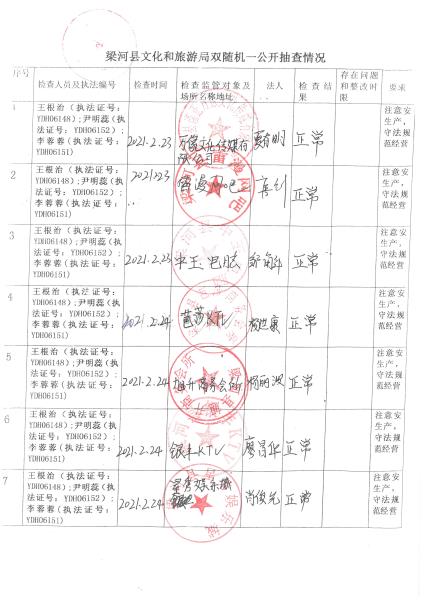 梁河县文化和旅游局双随机一公开抽查情况
序号 检查人员及执法编号 检查时间 检查监管对象及场所名称地址 法人 检查结果 存在问题和整改时限 要求
1
王根治（执法证号：
YDH06148）;尹明蕊（执
法证号：YDH06152）;
李蓉蓉（执法证号：
YDH06151）
2021.2.23
文化传媒有
限公司
正常
注意安
生产，
守法规
范经营
2
王根治（执法证号：
YDH06148）;尹明蕊（执
法证号：YDH06152）;
李蓉蓉（执法证号：
YDH06151）
正常
注意安
生产，
守法规
范经营
3
王根治（执法证号：
YDH06148）;尹明蕊（执
法证号：YDH06152）;
李蓉蓉（执法证号：
YDH06151）
2021.2.23
正常
注意安
生产，
守法规
范经营
4
王根治（执法证号：
YDH06148）;尹明蕊（执
法证号：YDH06152）;
李蓉蓉（执法证号：
YDH06151）
2021.2.24
芭莎KTV
正常
注意安
生产，
守法规
范经营
5
王根治（执法证号：
YDH06148）;尹明蕊（执
法证号：YDH06152）;
李蓉蓉（执法证号：
YDH06151）
2021.2.24
旭升商务会所
正常
注意安
生产，
守法规
范经营
6
王根治（执法证号：
YDH06148）;尹明蕊（执
法证号：YDH06152）;
李蓉蓉（执法证号：
YDH06151）
2021.2.24
银丰KTV
廖昌华
正常
注意安
生产，
守法规
范经营
7
王根治（执法证号：
YDH06148）;尹明蕊（执
法证号：YDH06152）;
李蓉蓉（执法证号：
YDH06151）
2021.2.24
尚俊先
正常
注意安
生产，
守法规
范经营